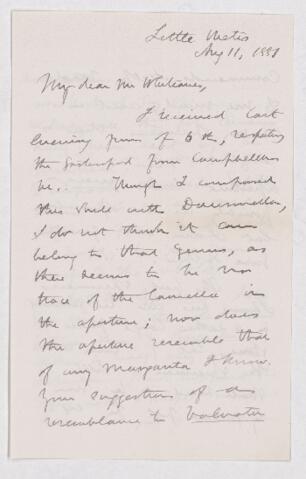 Little Metis
Aug 11, 1881
My dear Mr Whiteaves,
I received last
Evening yours of 6th, respecting
the Gasteropod from Campbellton
&c. Though I compared
this shell with Dawsonella,
I do not think it can
belong to that Genus, as
there seems to be no
trace of the Lamella in
the aperture; nor does
the aperture resemble that
of any Margarita I know.
Your suggestion of a
resemblance to Valvata